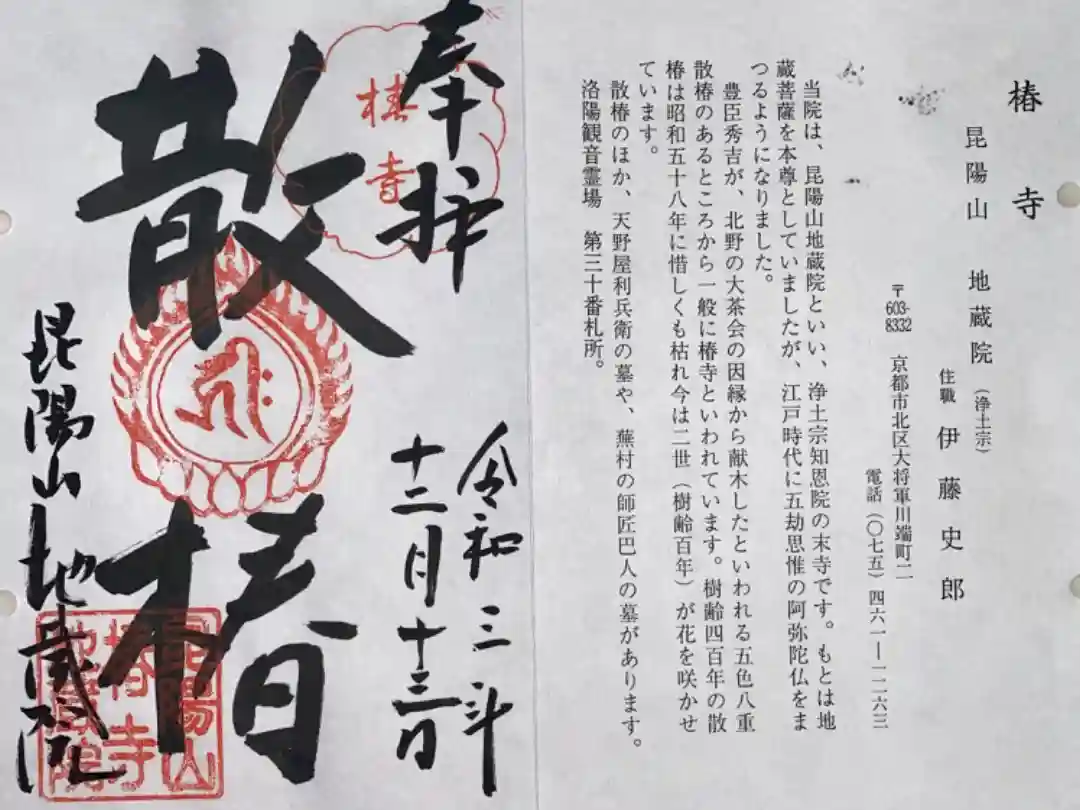 椿寺
昆陽山 地蔵院(浄土宗)
住職 伊藤史郎
〒603-8332 京都市北区大将軍川端町二
電話(〇七五)四六一―一二六三
当院は、昆陽山地蔵院といい、浄土宗知恩院の末寺です。もとは地
蔵菩薩を本尊としていましたが、江戸時代に五劫思惟の阿弥陀仏をま
つるようになりました。
豊臣秀吉が、北野の大茶会の因縁から献木したといわれる五色八重
散椿のあるところから一般に椿寺といわれています。樹齢四百年の散
椿は昭和五十八年に惜しくも枯れ今は二世(樹齢百年)が花を咲かせ
ています。
散椿のほか、天野屋利兵衛の墓や、蕪村の師匠巴人の墓があります。
洛陽観音霊場 第三十番札所。
奉拝
令和三年
十二月十三日
椿寺
散椿
昆陽山地蔵院
昆陽山
椿寺
地蔵院